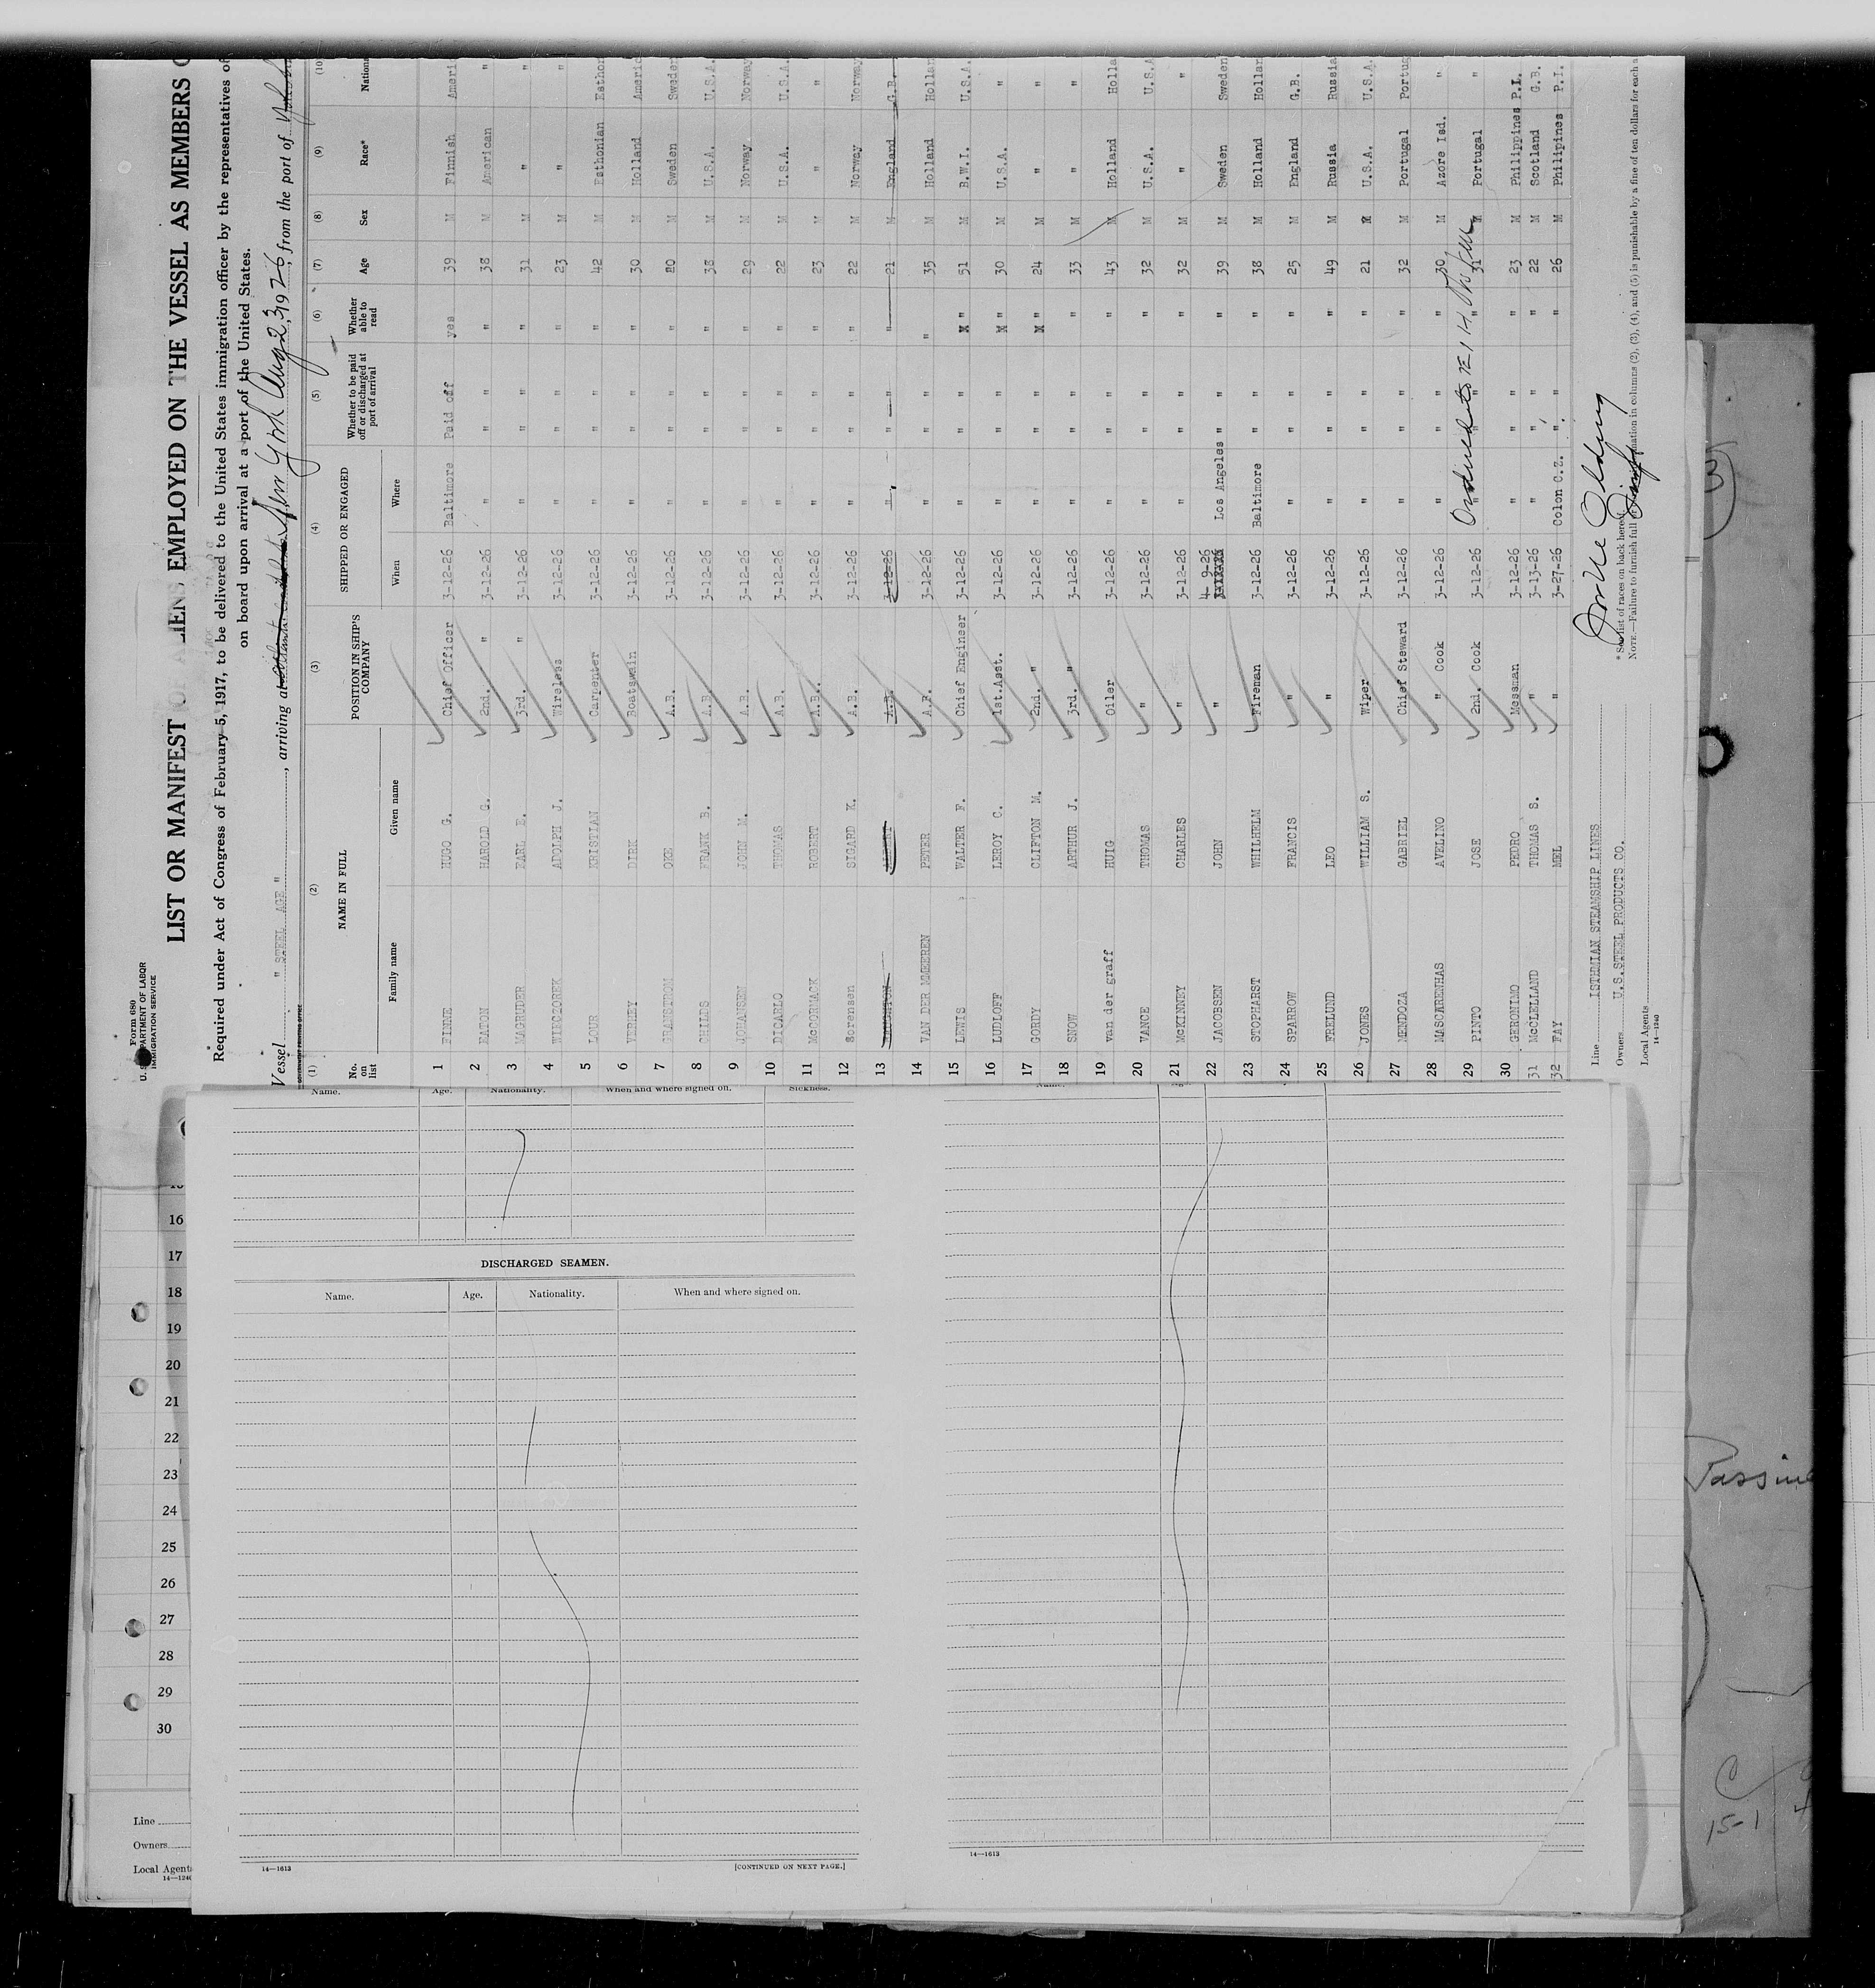 Form 680
U.S. DEPARTMENT OF LABOR
IMMIGRATION SERVICE
LIST OR MANIFEST OF ALIENS EMPLOYED ON THE VESSEL AS MEMBERS O
Required under Act of Congress of February 5, 1917, to be delivered to the United States immigration officer by the representatives of
on board upon arrival at a port of the United States.
Vessel " STEEL AGE " , arriving at New York Aug 23, 1926, from the port of
(1) (2) (3) (4) (5) (6) (7) (8) (9) (10
No. on list NAME IN FULL POSITION IN SHIP'S COMPANY SHIPPED OR ENGAGED Whether to be paid off or discharged at port of arrival Whether able to read Age Sex Race* Nationa
Family name Given name When Where
1 FINNE HUGO G. Chief Officer 3-12-26 Baltimore Paid off yes 39 M Finnish Ameri
2 EATON HAROLD G. 2nd. " 3-12-26 " " " 38 M American "
3 MAGRUDER EARL E. 3rd. " 3-12-26 " " " 31 M " "
4 WIECZOREK ADOLPH J. Wireless 3-12-26 " " " 23 M " "
5 LOUR KRISTIAN Carpenter 3-12-26 " " " 42 M Esthonian Esthon
6 VERLEY DIRK Boatswain 3-12-26 " " " 30 M Holland Americ
7 GRANSTROM OKE A.B. 3-12-26 " " " 20 M Sweden Sweden
8 CHILDS FRANK B. A.B. 3-12-26 " " " 38 M U.S.A. U.S.A.
9 JOHANSEN JOHN M. A.B. 3-12-26 " " " 29 M Norway Norway
10 DICARLO THOMAS A.B. 3-12-26 " " " 22 M U.S.A. U.S.A.
11 McCORMACK ROBERT A.B. 3-12-26 " " " 23 M " "
12 Sorensen SIGARD K. A.B. 3-12-26 " " " 22 M Norway Norway
13 A.B. 3-12-26 " " " 21 M England G.B.
14 VAN DER MEEREN PETER A.B. 3-12-26 " " " 35 M Holland Hollan
15 LEWIS WALTER F. Chief Engineer 3-12-26 " " X " 51 M B.W.I. U.S.A.
16 LUDLOFF LEROY C. 1st.Asst. 3-12-26 " " X " 30 M U.S.A. "
17 GORDY CLIFTON M. 2nd. " 3-12-26 " " X " 24 M " "
18 SNOW ARTHUR J. 3rd. " 3-12-26 " " " 33 M " "
19 van der graff HUIG Oiler 3-12-26 " " " 43 M Holland Holla
20 VANCE THOMAS " 3-12-26 " " " 32 M U.S.A. U.S.A
21 McKINNEY CHARLES " 3-12-26 " " " 32 M " "
22 JACOBSEN JOHN " 4-9-26 Los Angeles " " 39 M Sweden Sweden
23 STOPHARST WHILHELM Fireman 3-12-26 Baltimore " " 38 M Holland Hollan
24 SPARROW FRANCIS " 3-12-26 " " " 25 M England G.B.
25 FRELUND LEO " 3-12-26 " " " 49 M Russia Russia
26 JONES WILLIAM S. Wiper 3-12-26 " " " 21 M U.S.A. U.S.A.
27 MENDOZA GABRIEL Chief Steward 3-12-26 " " " 32 M Portugal Portug
28 MASCARENHAS AVELINO " Cook 3-12-26 " " " 30 M Azore Isd. "
29 PINTO JOSE 2nd. Cook 3-12-26 " " " 31 M Portugal "
30 GERONIMO PEDRO Messman 3-12-26 " " " 23 M Philippines P.I.
31 McCLELLAND THOMAS S. " 3-13-26 " " " 22 M Scotland G.B.
32 FAY MEL " 3-27-26 Colon C.Z. " " 26 M Philipines P.I.
Line ISTHMIAN STEAMSHIP LINES
Owners U.S.STEEL PRODUCTS CO.
Local Agents
14—1240
* See list of races on back hereof.
NOTE.—Failure to furnish full information in columns (2), (3), (4), and (5) is punishable by a fine of ten dollars for each a
Name. Age. Nationality. When and where signed on. Sickness.
DISCHARGED SEAMEN.
Name. Age. Nationality. When and where signed on.
14—1613 [CONTINUED ON NEXT PAGE.]
Name.
14—1613
16
17
18
19
20
21
22
23
24
25
26
27
28
29
30
Line
Owners
Local Agents
14—1240
15-1